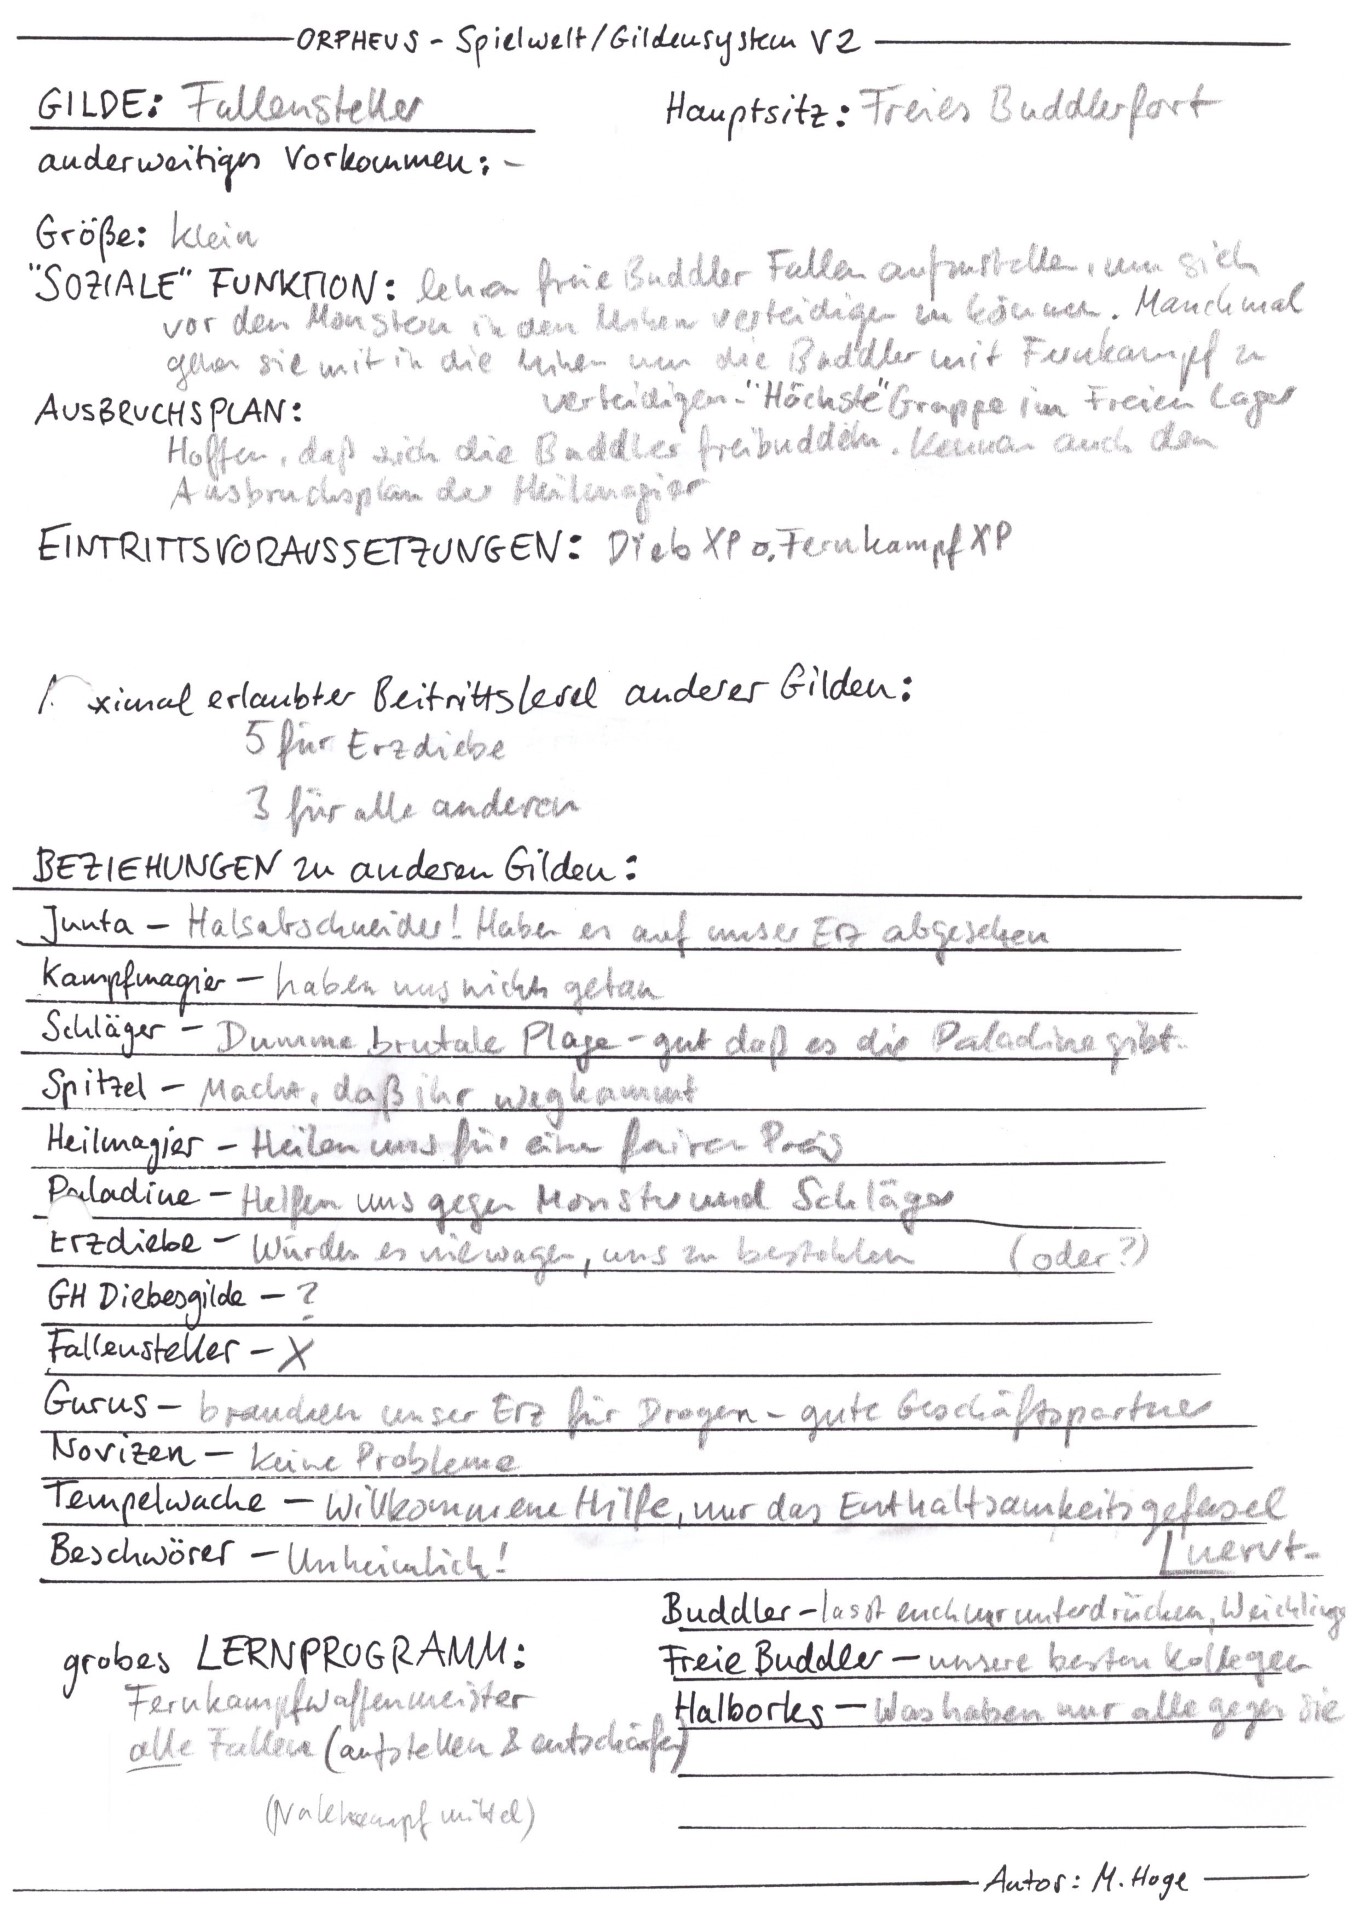 ORPHEUS - Spielwelt/Gildensystem V2
GILDE: Fallensteller Hauptsitz: Freies Buddlerfort
anderweitiges Vorkommen: -
Größe: klein
"SOZIALE" FUNKTION: lehren freie Buddler Fallen aufzustellen, um sich
vor den Monstern in den Minen verteidigen zu können. Manchmal
gehen sie mit in die Minen um die Buddler mit Fernkampf zu
verteidigen. "Höchste" Gruppe im Freien Lager
AUSBRUCHSPLAN:
Hoffen, daß sich die Buddler freibuddeln. Kennen auch den
Ausbruchsplan der Heilmagier
EINTRITTSVORAUSSETZUNGEN: Dieb XP o. Fernkampf XP
ximal erlaubter Beitrittslevel anderer Gilden:
5 für Erzdiebe
3 für alle anderen
BEZIEHUNGEN zu anderen Gilden:
Junta - Halsabschneider! Haben es auf unser Erz abgesehen
Kampfmagier - haben uns nichts getan
Schläger - Dumme brutale Plage - gut daß es die Paladine gibt.
Spitzel - Macht, daß ihr wegkommt
Heilmagier - Heilen uns für einen fairen Preis
Paladine - Helfen uns gegen Monster und Schläger
Erzdiebe - Würden es nie wagen, uns zu bestehlen (oder?)
GH Diebesgilde - ?
Fallensteller - X
Gurus - brauchen unser Erz für Drogen - gute Geschäftspartner
Novizen - keine Probleme
Tempelwache - Willkommene Hilfe, nur das Enthaltsamkeitsgefasel
nervt.
Beschwörer - Unheimlich!
Buddler - lasst euch nur unterdrücken, Weichlinge
Freie Buddler - unsere besten Kollegen
Halborks - Was haben nur alle gegen sie
grobes LERNPROGRAMM:
Fernkampfwaffenmeister
alle Fallen (aufstellen & entschärfen)
(Nahkampf mittel)
Autor: M. Hoge